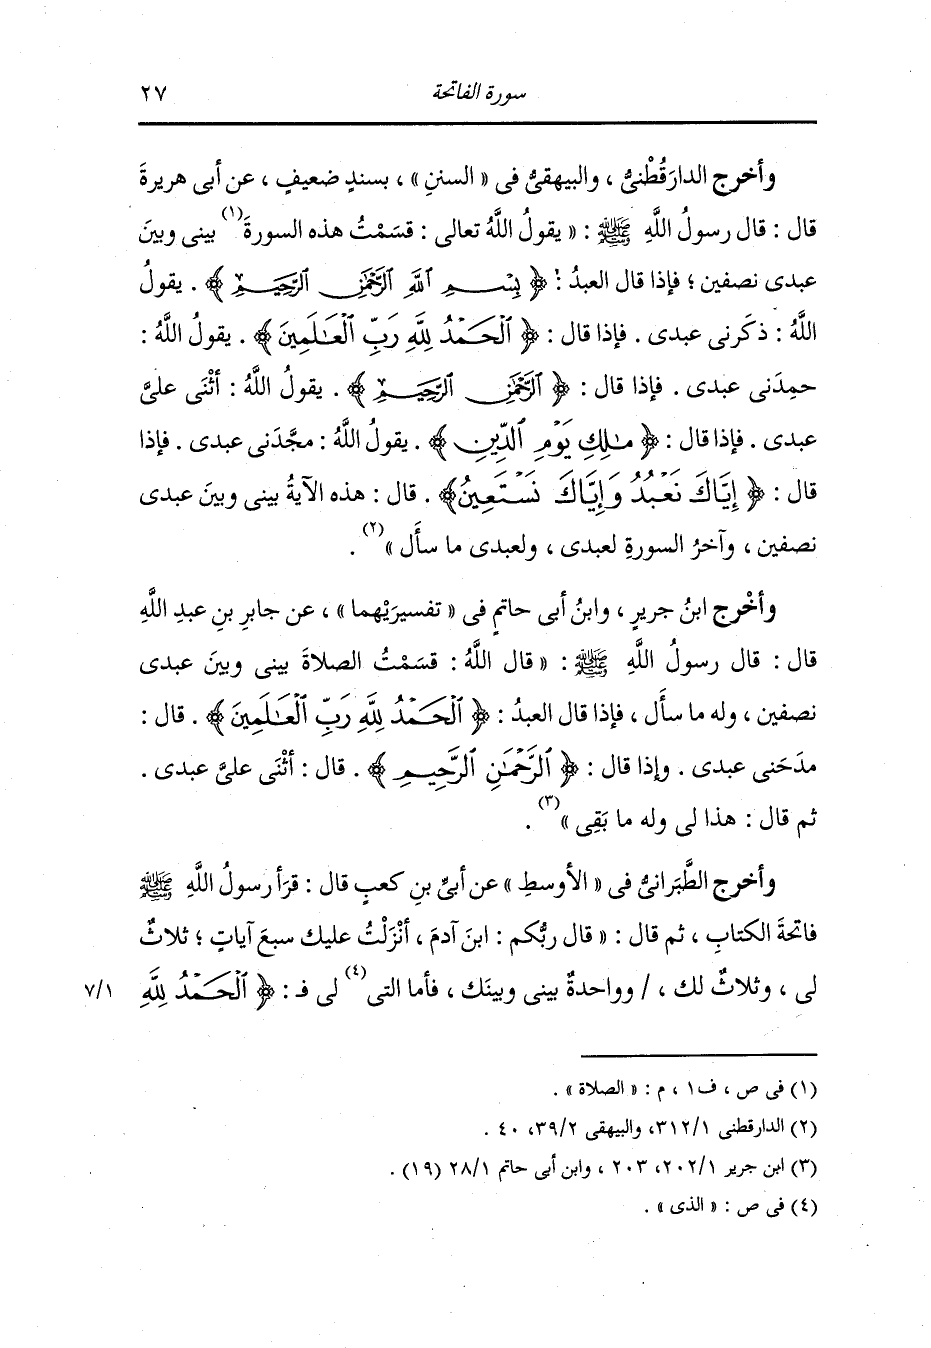 سورة الفاتحة ٢٧
وأخرج الدارَقُطْنىُّ ، والبيهقىُّ فى « السننِ » ، بسندٍ ضعيفٍ ، عن أبى هريرةَ
قال : قال رسولُ اللَّهِ ﷺ : « يقولُ اللَّهُ تعالى : قسَمْتُ هذه السورةَ(١) بينى وبينَ
عبدى نصفين ؛ فإذا قال العبدُ : ﴿ بِسْمِ ٱللَّهِ ٱلرَّحْمَٰنِ ٱلرَّحِيمِ ﴾ . يقولُ
اللَّهُ : ذكَرنى عبدى . فإذا قال : ﴿ ٱلْحَمْدُ لِلَّهِ رَبِّ ٱلْعَٰلَمِينَ ﴾ . يقولُ اللَّهُ :
حمِدَنى عبدى . فإذا قال : ﴿ ٱلرَّحْمَٰنِ ٱلرَّحِيمِ ﴾ . يقولُ اللَّهُ : أثْنَى علىَّ
عبدى . فإذا قال : ﴿ مَٰلِكِ يَوْمِ ٱلدِّينِ ﴾ . يقولُ اللَّهُ : مجَّدَنى عبدى . فإذا
قال : ﴿ إِيَّاكَ نَعْبُدُ وَإِيَّاكَ نَسْتَعِينُ ﴾ . قال : هذه الآيةُ بينى وبينَ عبدى
نصفين ، وآخرُ السورةِ لعبدى ، ولعبدى ما سأَل »(٢) .
وأخْرج ابنُ جريرٍ ، وابنُ أبى حاتمٍ فى « تفسيرَيْهما » ، عن جابرِ بنِ عبدِ اللَّهِ
قال : قال رسولُ اللَّهِ ﷺ : « قال اللَّهُ : قسَمْتُ الصلاةَ بينى وبينَ عبدى
نصفين ، وله ما سأَل ، فإذا قال العبدُ : ﴿ ٱلْحَمْدُ لِلَّهِ رَبِّ ٱلْعَٰلَمِينَ ﴾ . قال :
مدَحَنى عبدى . وإذا قال : ﴿ ٱلرَّحْمَٰنِ ٱلرَّحِيمِ ﴾ . قال : أثْنَى علىَّ عبدى .
ثم قال : هذا لى وله ما بَقِى »(٣) .
وأخرج الطَّبَرانىُّ فى « الأوسطِ » عن أبىِّ بنِ كعبٍ قال : قرَأ رسولُ اللَّهِ ﷺ
فاتحةَ الكتابِ ، ثم قال : « قال ربُّكم : ابنَ آدمَ ، أنْزَلْتُ عليك سبعَ آياتٍ ؛ ثلاثٌ
لى ، وثلاثٌ لك ، / وواحدةٌ بينى وبينَك ، فأما التى(٤) لى فـ : ﴿ ٱلْحَمْدُ لِلَّهِ ٧/١
(١) فى ص ، ف١ ، م : « الصلاة » .
(٢) الدارقطنى ٣١٢/١، والبيهقى ٣٩/٢، ٤٠ .
(٣) ابن جرير ٢٠٢/١، ٢٠٣ ، وابن أبى حاتم ٢٨/١ (١٩) .
(٤) فى ص : « الذى » .